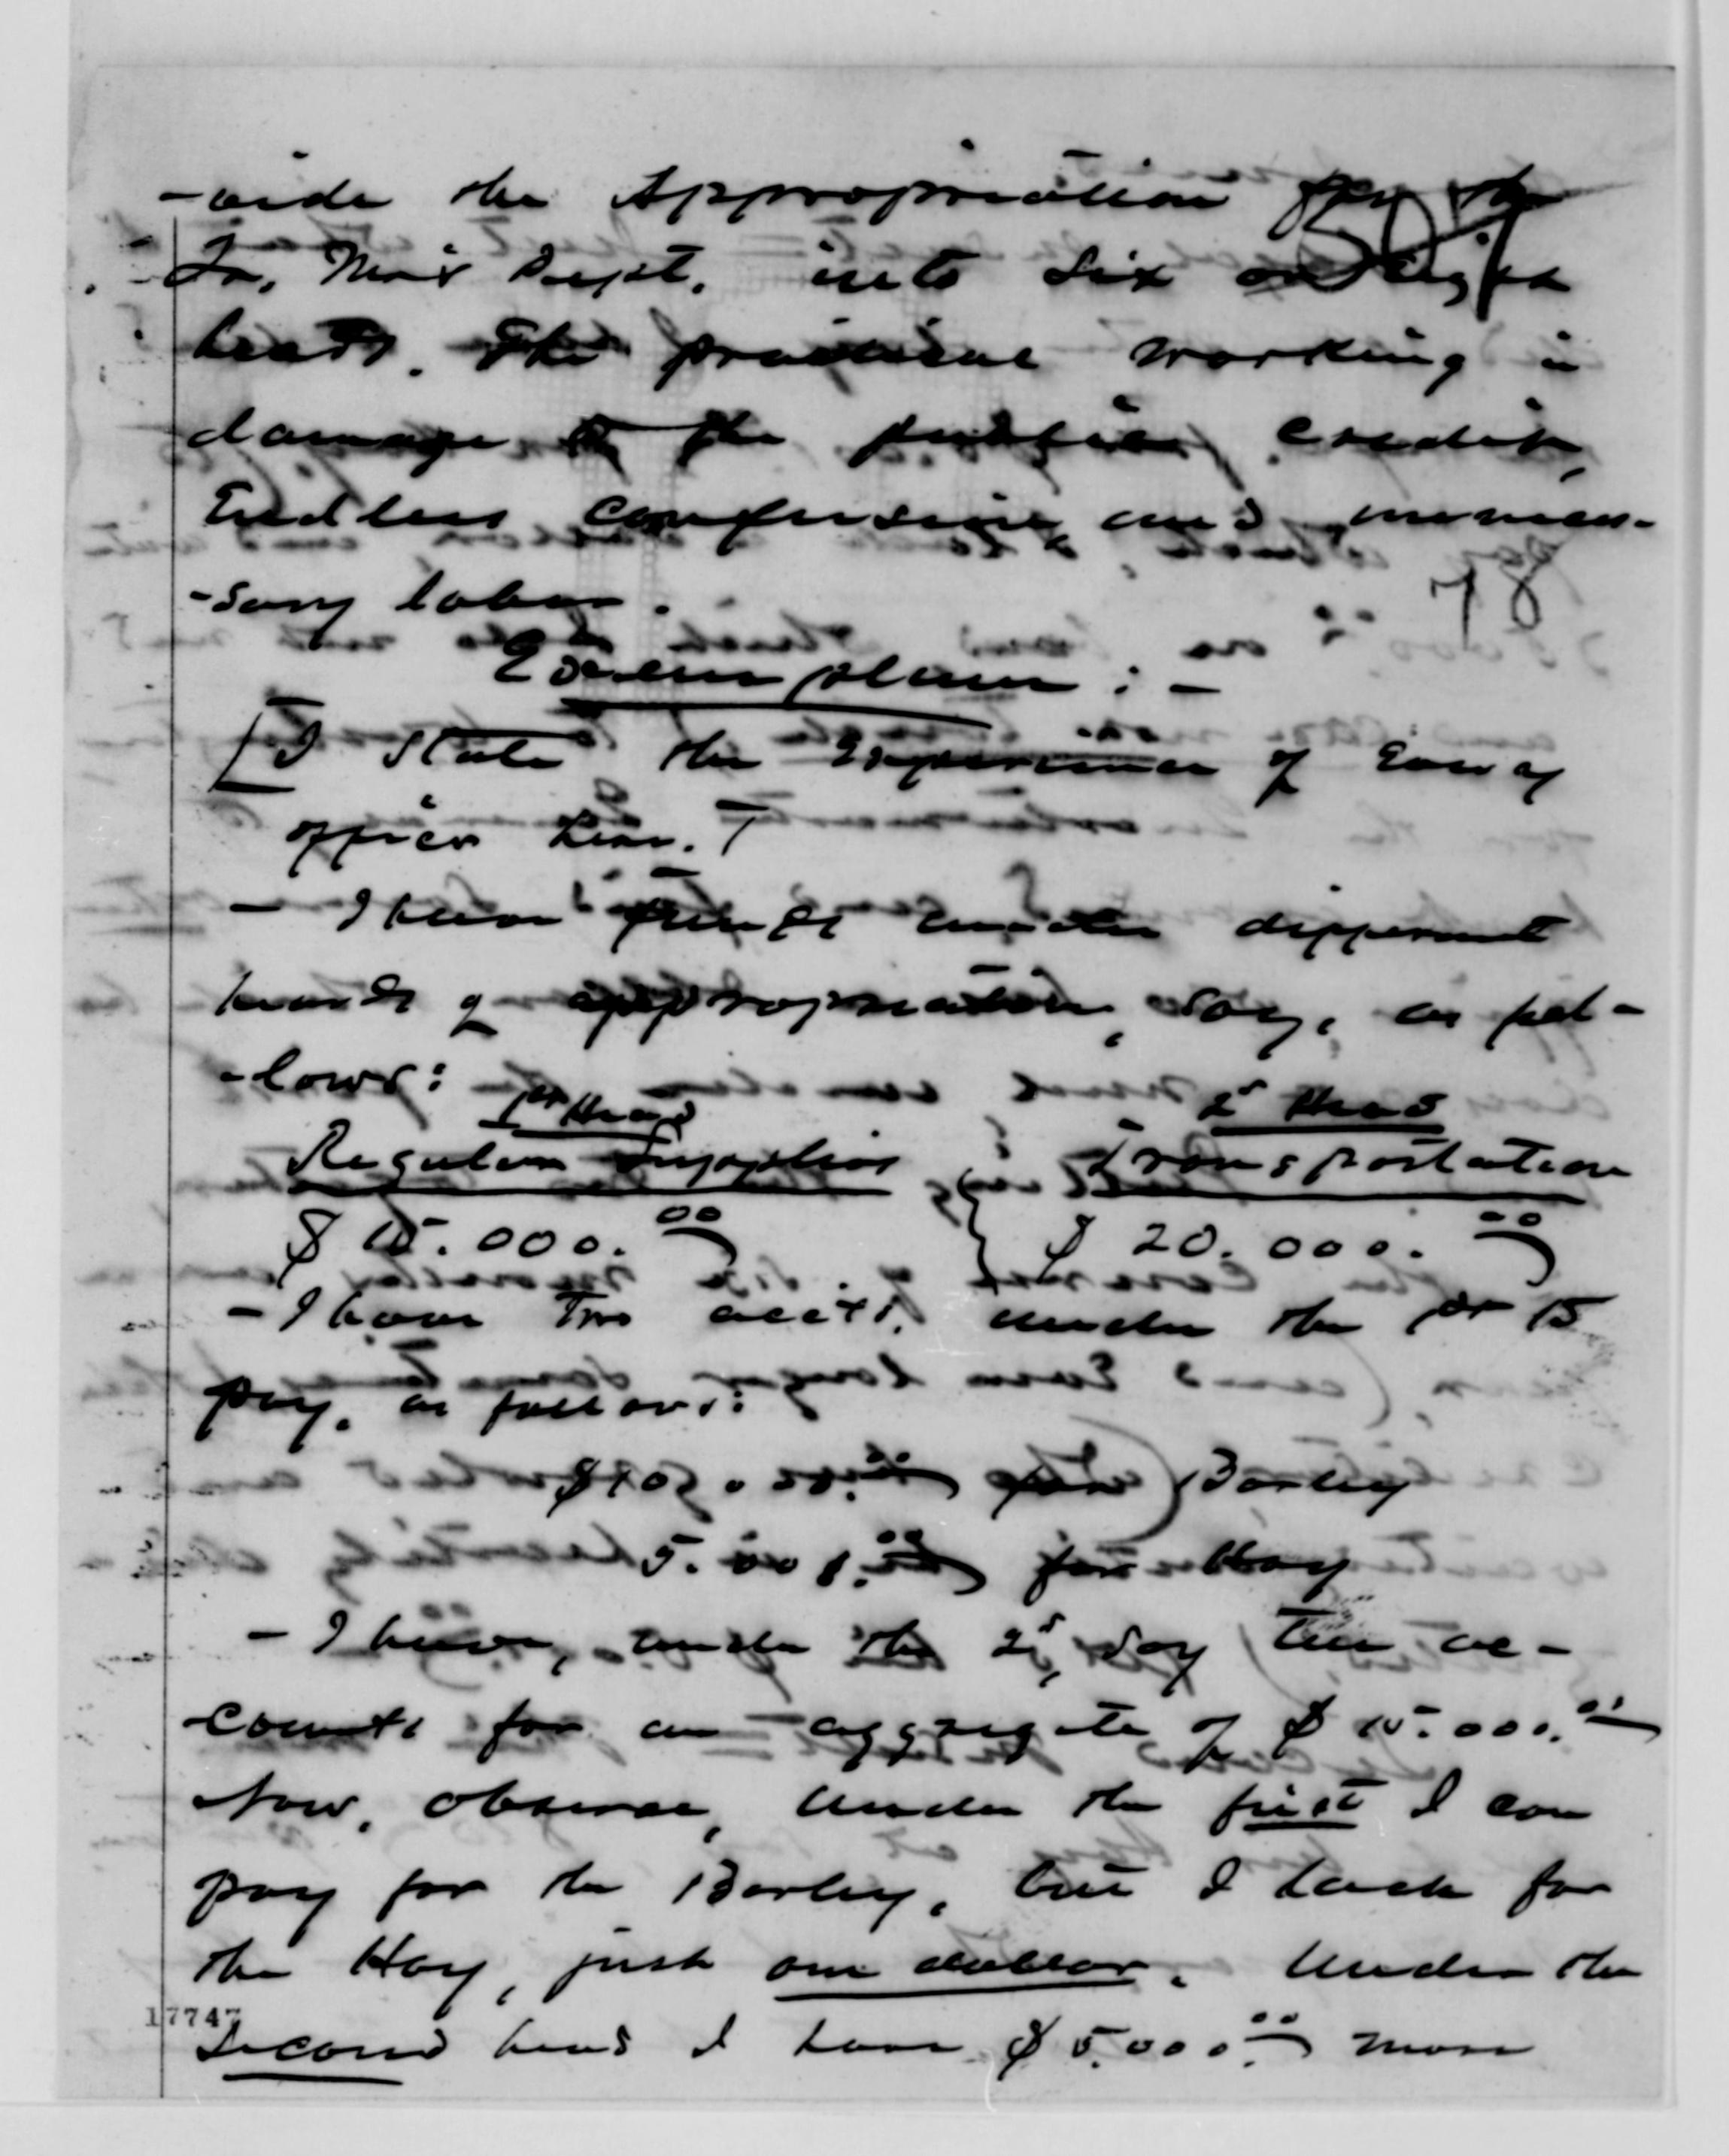 -vide the Appropriation for the
Qr. Mr's Dept. into six or eight
heads. The practical working is
damage to the public credit,
Endless confusion, and unneces-
-sary labor.
78
Exemplum : —
[I state the Experience of Every
officer here.]
— I have funds under different
heads of appropriation, say, as fol-
-lows:
1st Head 2d Head
Regular Supplies Transportation
$ 15.000.00 } $ 20.000.00
— I have two accts. under the 1st to
pay, as follows:
$10.000.00 for Barley
5.001.00 for Hay
— I have, under the 2d, say ten ac-
-counts for an aggregate of $ 15.000.00
Now, observe, under the first I can
pay for the Barley, but I lack for
the Hay, just one dollar. Under the
17747
Second head I have $ 5.000.00 more